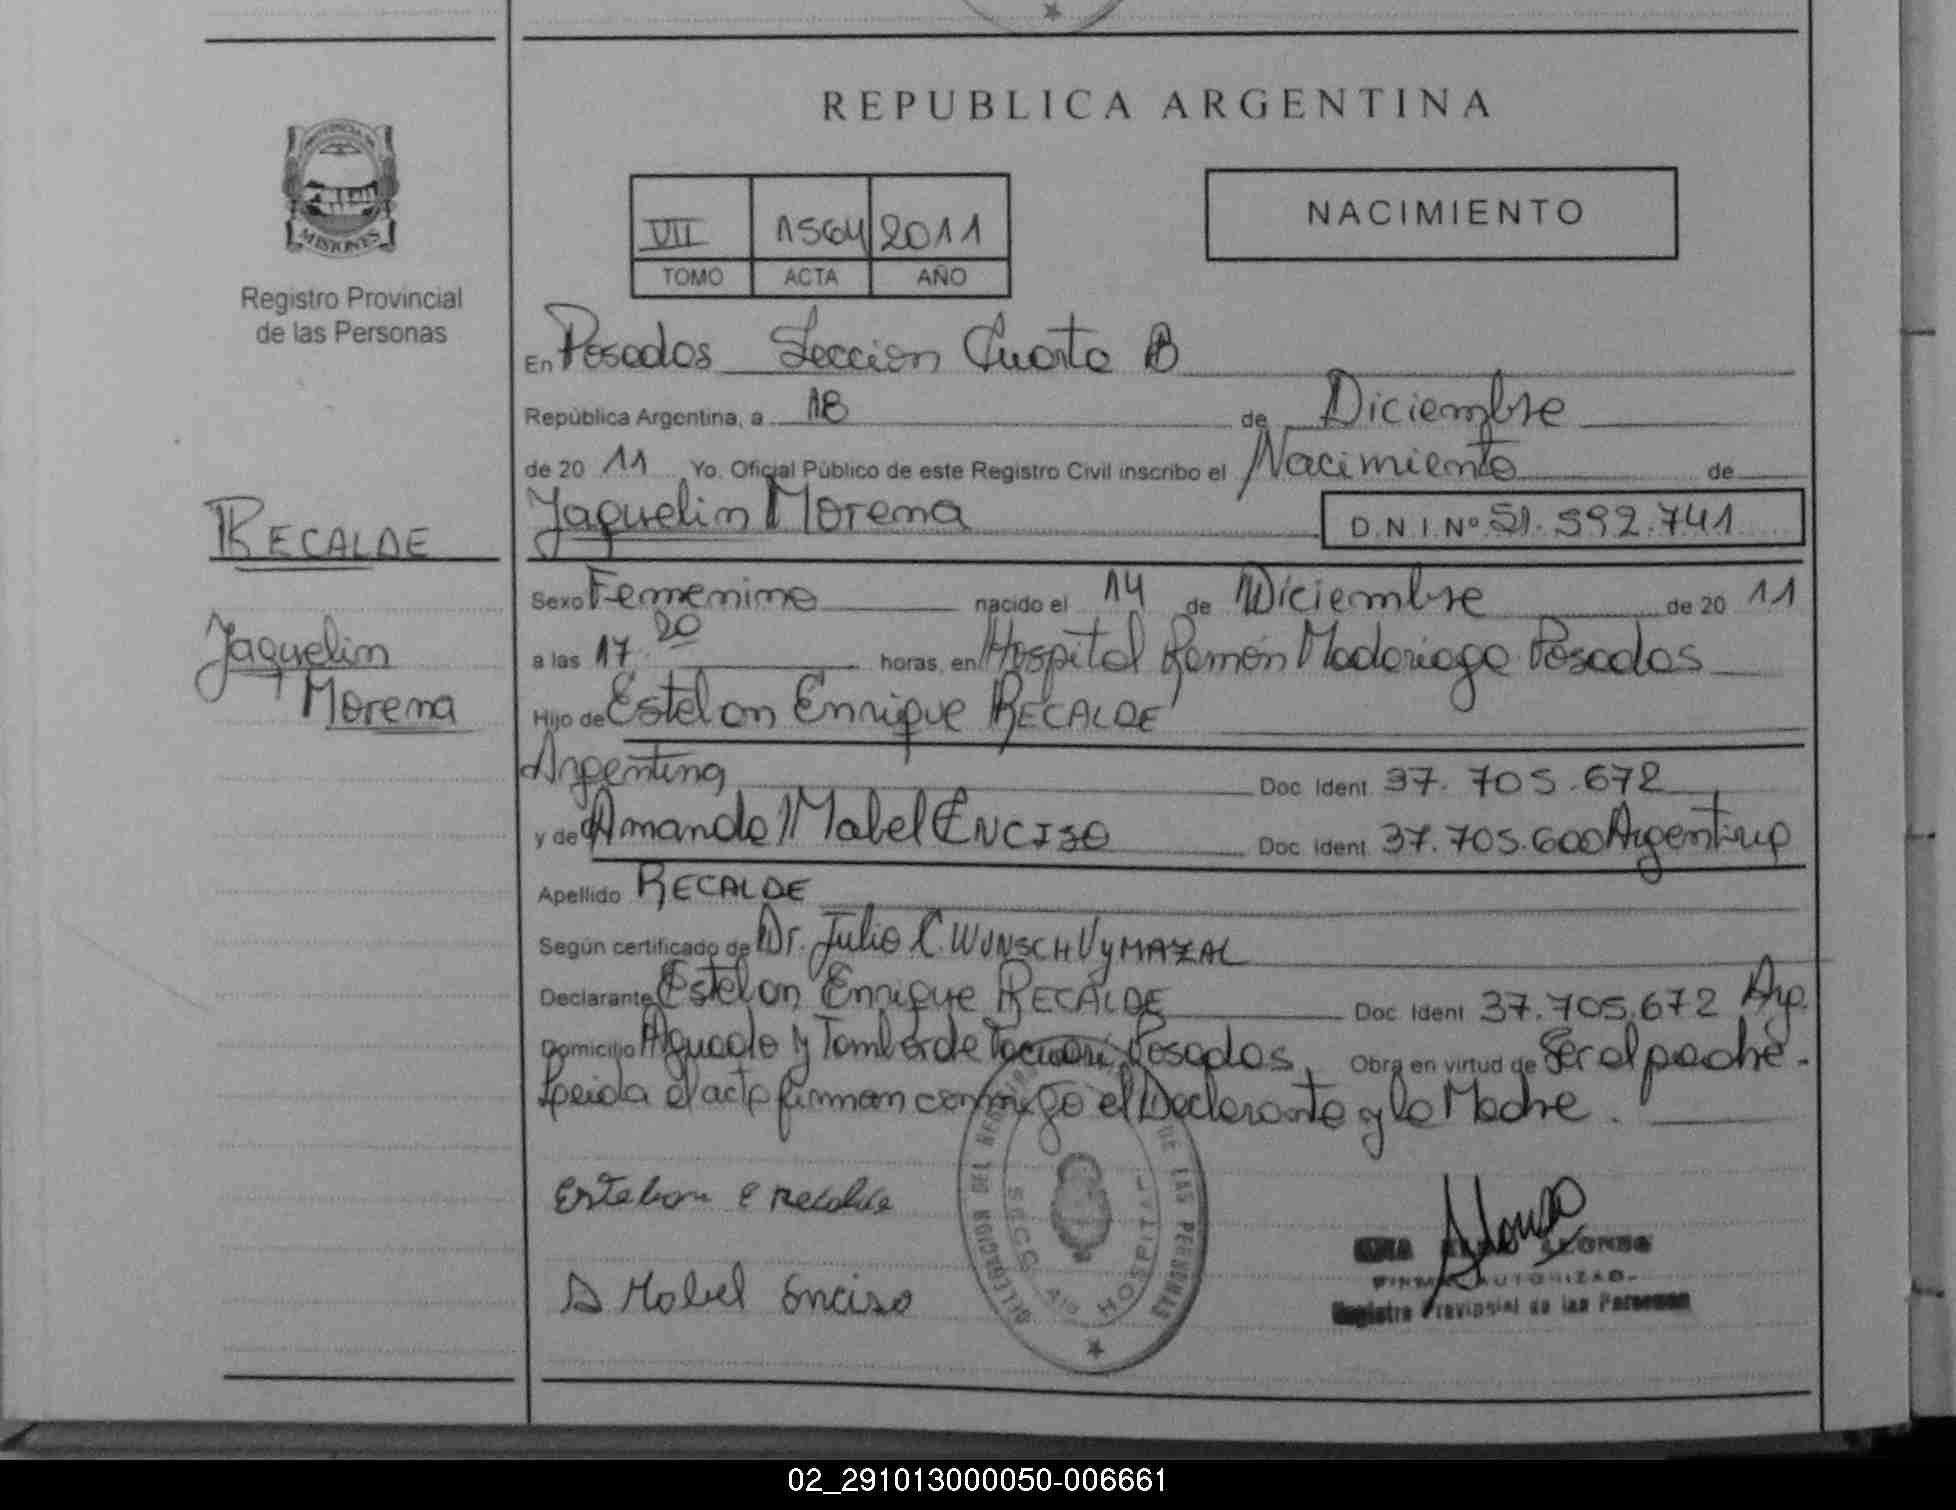 REPUBLICA ARGENTINA
PROVINCIA DE
MISIONES
Registro Provincial
de las Personas
VII 1564 2011
TOMO ACTA AÑO
NACIMIENTO
En Posadas Seccion Cuarta B
República Argentina, a 18 de Diciembre
de 20 11 Yo. Oficial Público de este Registro Civil inscribo el Nacimiento de
RECALDE
Jaquelin Morena
Jaquelin Morena D.N.I. Nº 51.592.741
Sexo Femenino nacido el 14 de Diciembre de 20 11
a las 17.20 horas, en Hospital Ramón Madariaga Posadas
Hijo de Esteban Enrique RECALDE
Argentina Doc. Ident. 37.705.672
y de Amanda Mabel ENCISO Doc. Ident. 37.705.600 Argentina
Apellido RECALDE
Según certificado de Dr. Julio C. WUNSCH VYMAZAL
Declarante Esteban Enrique RECALDE Doc. Ident. 37.705.672 Arg.
Domicilio Aguado y Tambor de Tacuari, Posadas. Obra en virtud de Ser el padre.
Leida el acta firman conmigo el Declarante y la Madre.
Esteban E Recalde
A Mabel Enciso
DELEGACION DE REGISTRO DE LAS PERSONAS
SECC. 4ta HOSPITAL
ALONSO
FIRMA AUTORIZADA
Registro Provincial de las Personas
02_291013000050-006661